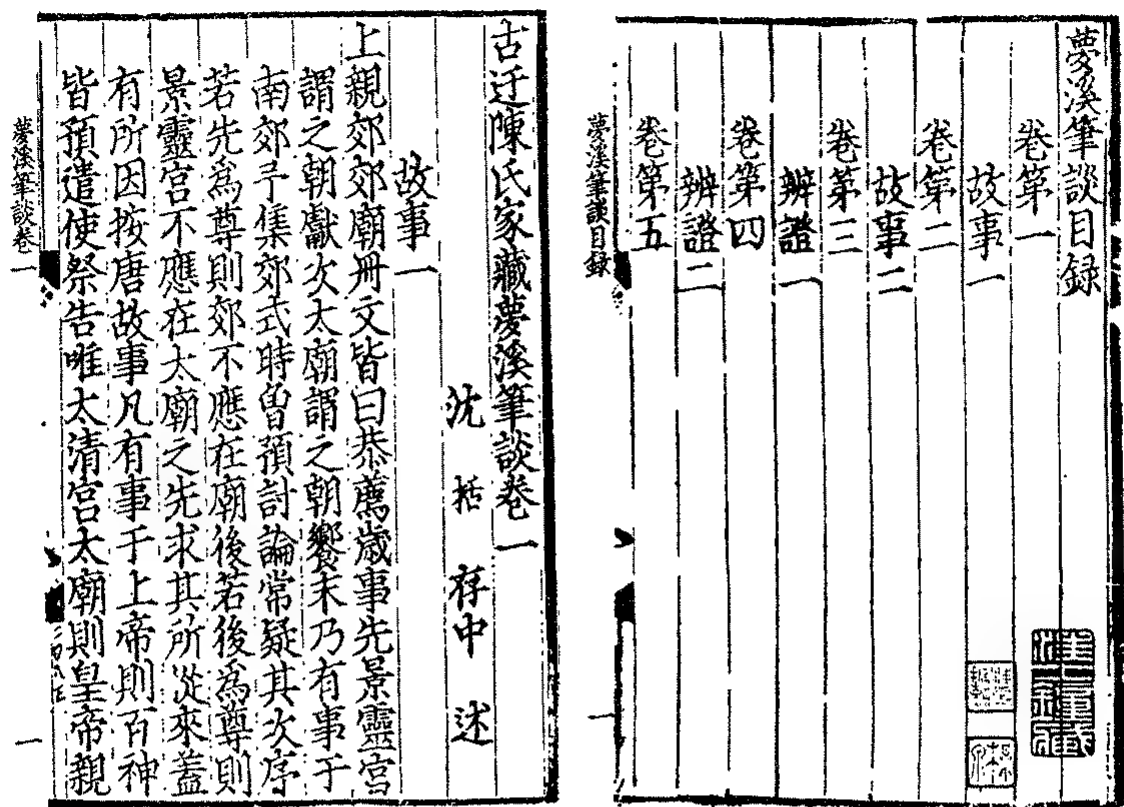 夢溪筆談目録
卷第一
故事一
卷第二
故事二
卷第三
辨證一
卷第四
辨證二
卷第五
夢溪筆談目録
一
古迂陳氏家藏夢溪筆談卷一
沈括存中述
故事一
上親郊郊廟册文皆曰恭薦歲事先景靈宮
謂之朝獻次太廟謂之朝饗末乃有事于
南郊予集郊式時曽預討論常疑其次序
若先爲尊則郊不應在廟後若後爲尊則
景靈宮不應在太廟之先求其所從來蓋
有所因按唐故事凡有事于上帝則百神
皆預遣使祭告唯太清宮太廟則皇帝親
夢溪筆談卷一
一